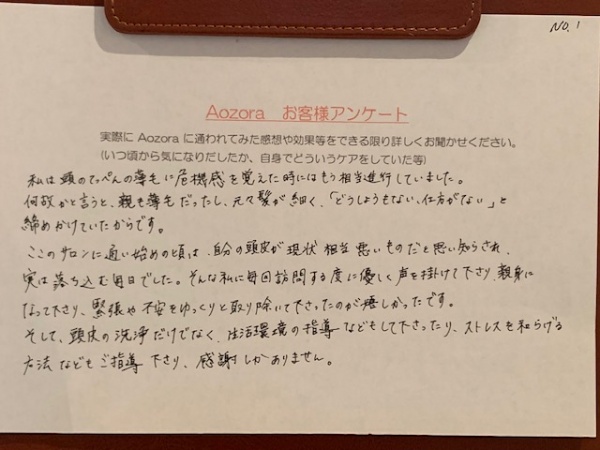 NO. 1
Aozora お客様アンケート
実際に Aozora に通われてみた感想や効果等をできる限り詳しくお聞かせください。
(いつ頃から気になりだしたか、自身でどういうケアをしていた等)
私は頭のてっぺんの薄毛に危機感を覚えた時にはもう相当進行していました。
何故かと言うと、親も薄毛だったし、元々髪が細く、「どうしようもない、仕方がない」と
締めかけていたからです。
ここのサロンに通い始めの頃は、自分の頭皮が現状相当悪いものだと思い知らされ、
実は落ち込む毎日でした。そんな私に毎回訪問する度に優しく声を掛けて下さり、親身に
なって下さり、緊張や不安をゆっくりと取り除いて下さったのが嬉しかったです。
そして、頭皮の洗浄だけでなく、生活環境の指導などもして下さったり、ストレスを和らげる
方法などもご指導下さり、感謝しかありません。